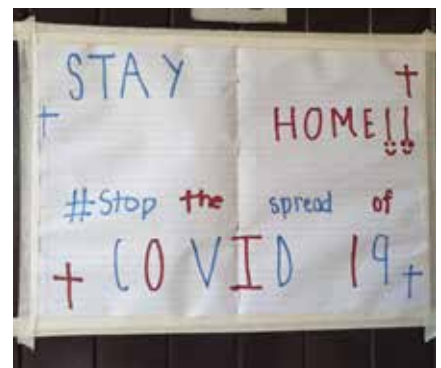 STAY
HOME!!
#Stop the spread of
COVID 19